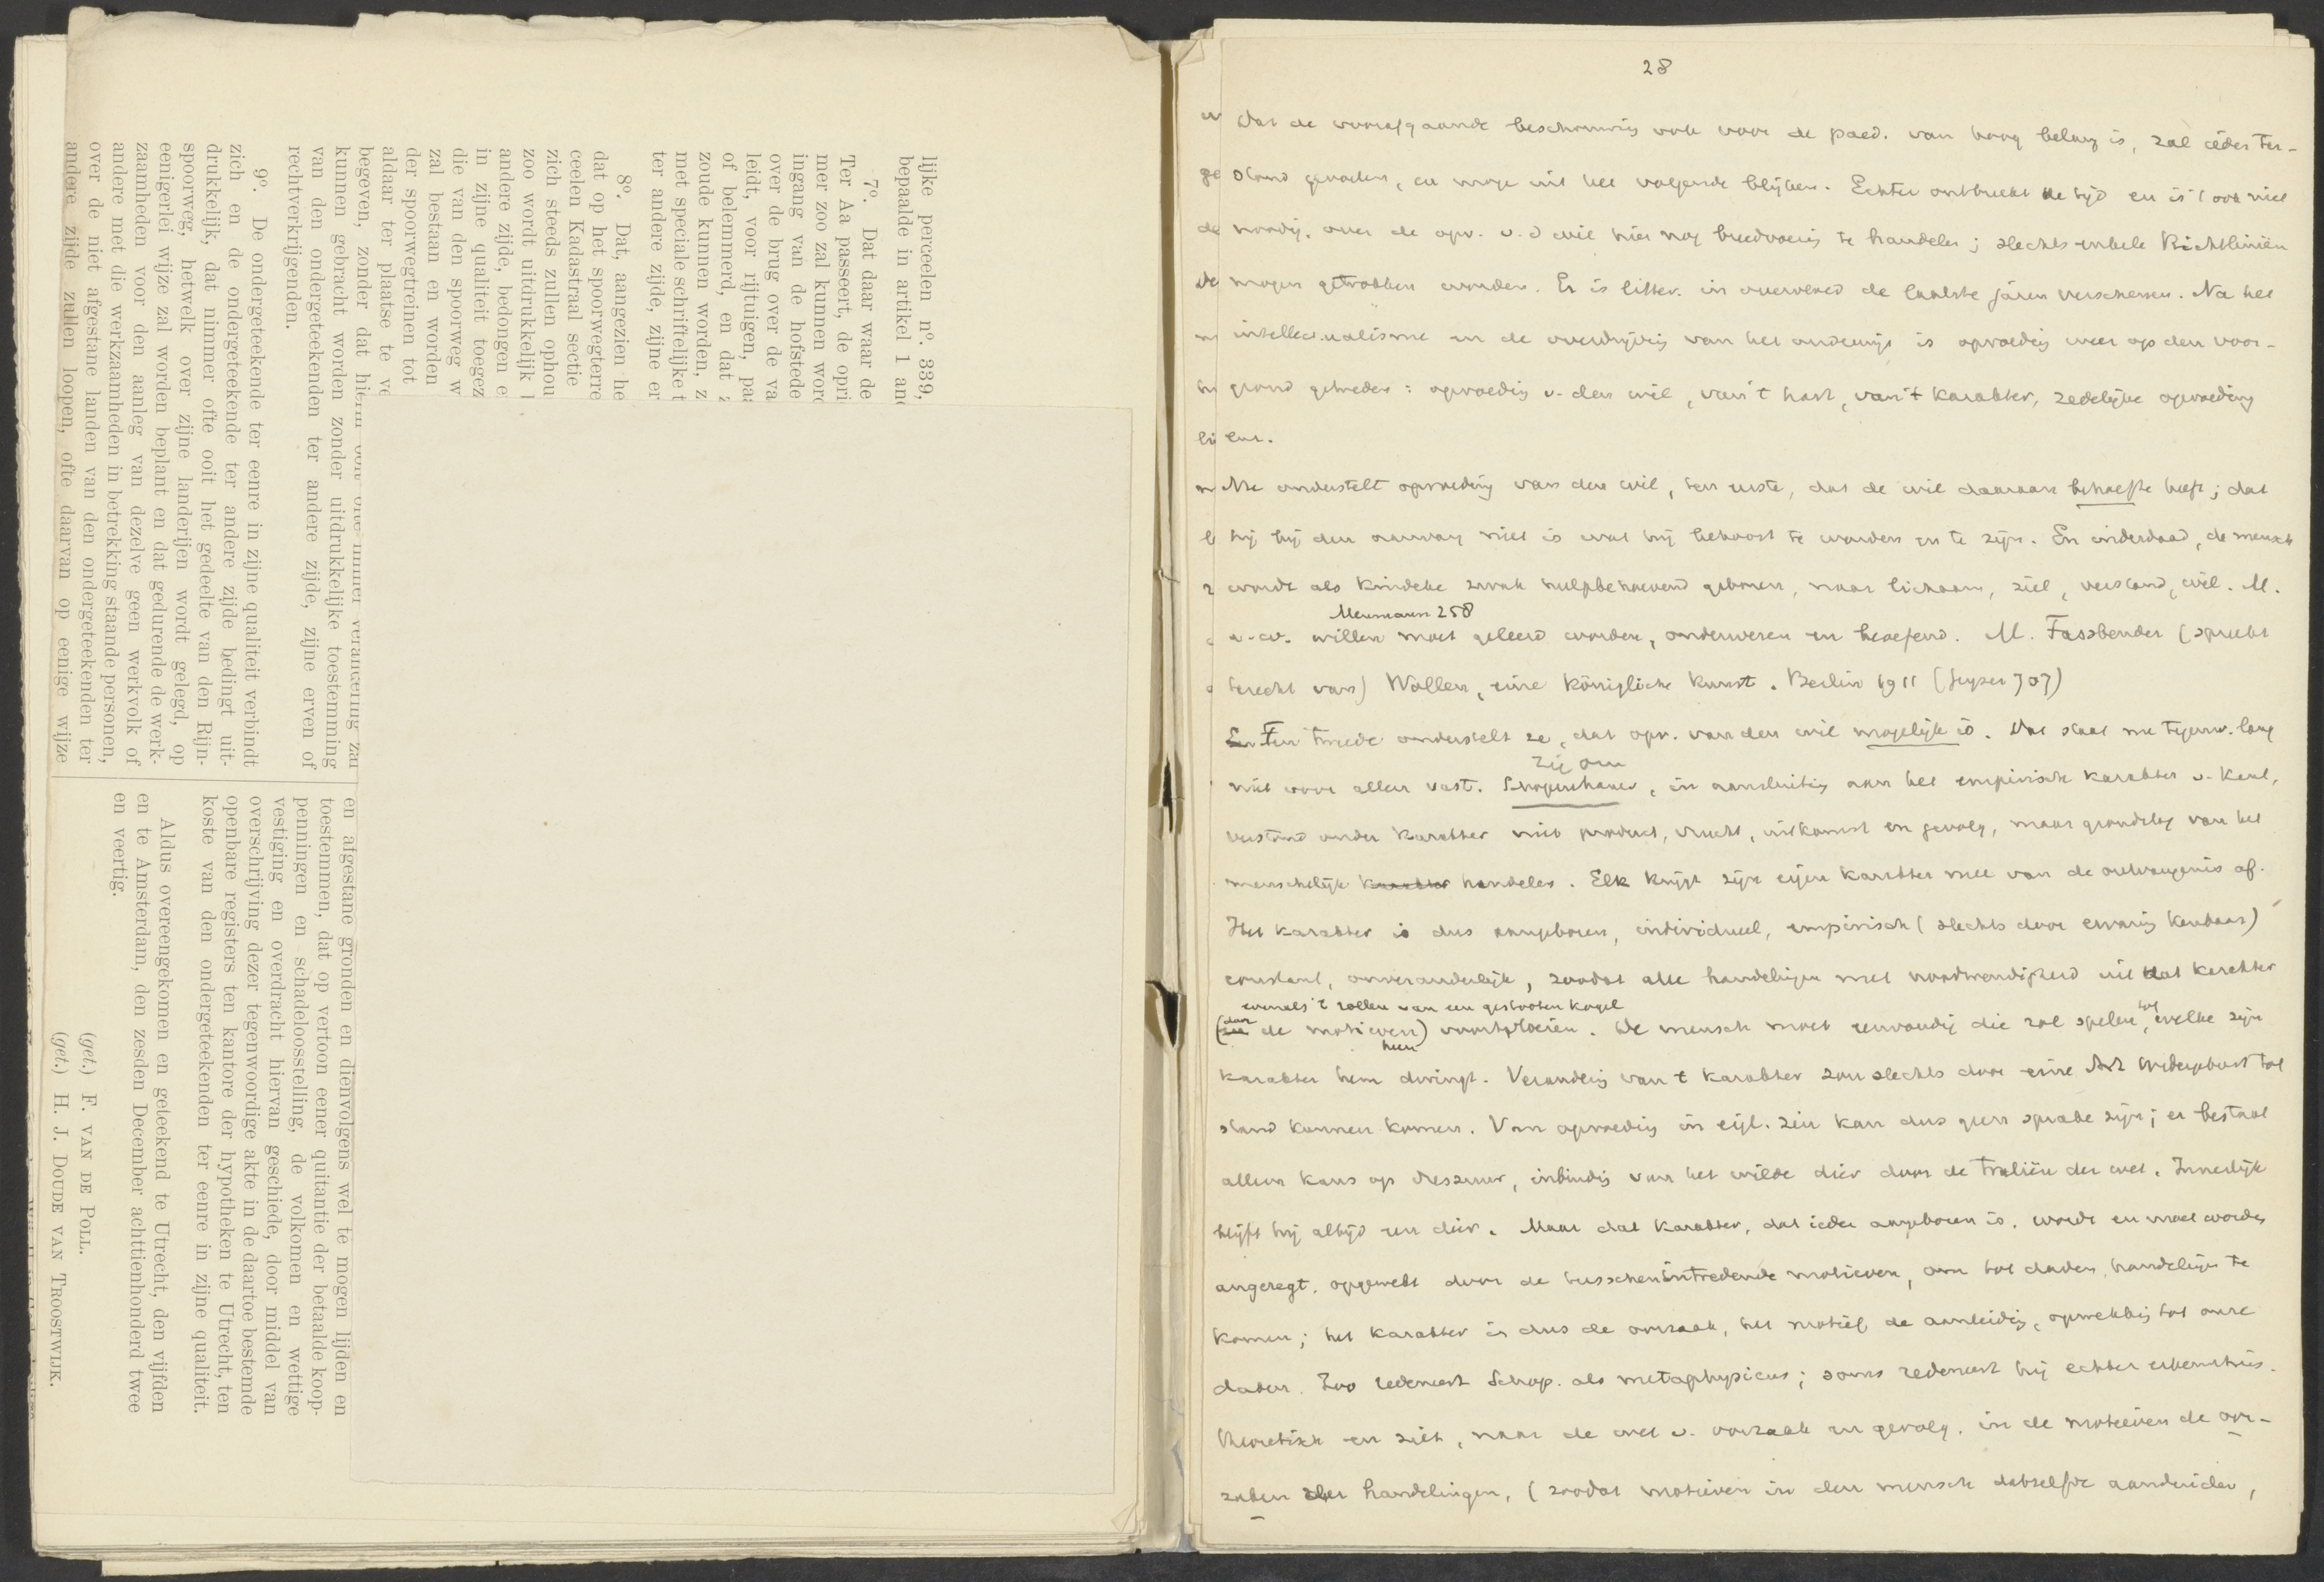 lijke perceelen nº. 339,
bepaalde in artikel 1 and
7º. Dat daar waar de
Ter Aa passeert, de opri
mer zoo zal kunnen word
ingang van de hofstede
over de brug over de va
leidt, voor rijtuigen, paa
of belemmerd, en dat z
zoude kunnen worden, z
met speciale schriftelijke t
ter andere zijde, zijne er
8º. Dat, aangezien he
dat op het spoorwegterre
ceelen Kadastraal sectie
zich steeds zullen ophou
zoo wordt uitdrukkelijk
andere zijde, bedongen e
in zijne qualiteit toegez
die van den spoorweg w
zal bestaan en worden
der spoorwegtreinen tot
aldaar ter plaatse te ve
begeven, zonder dat hierin ooit ofte immer verandering zal
kunnen gebracht worden zonder uitdrukkelijke toestemming
van den ondergeteekenden ter andere zijde, zijne erven of
rechtverkrijgenden.
9º. De ondergeteekende ter eenre in zijne qualiteit verbindt
zich en de ondergeteekende ter andere zijde bedingt uit-
drukkelijk, dat nimmer ofte ooit het gedeelte van den Rijn-
spoorweg, hetwelk over zijne landerijen wordt gelegd, op
eenigerlei wijze zal worden beplant en dat gedurende de werk-
zaamheden voor den aanleg van dezelve geen werkvolk of
andere met die werkzaamheden in betrekking staande personen,
over de niet afgestane landen van den ondergeteekenden ter
andere zijde zullen loopen, ofte daarvan op eenige wijze
en afgestane gronden en dienvolgens wel te mogen lijden en
toestemmen, dat op vertoon eener quitantie der betaalde koop-
penningen en schadeloosstelling, de volkomen en wettige
vestiging en overdracht hiervan geschiede, door middel van
overschrijving dezer tegenwoordige akte in de daartoe bestemde
openbare registers ten kantore der hypotheken te Utrecht, ten
koste van den ondergeteekenden ter eenre in zijne qualiteit.
Aldus overeengekomen en geteekend te Utrecht, den vijfden
en te Amsterdam, den zesden December achttienhonderd twee
en veertig.
(get.) F. VAN DE POLL.
(get.) H. J. DOUDE VAN TROOSTWIJK.
28
Dat de voorafgaande beschouwing ook voor de paed. van hoog belang is, zal ieder ter-
stond gevoelen, en moge uit het volgende blijken. Echter ontbreekt de tijd en is 't ook niet
noodig, over de opv. v. d wil hier nog breedvoerig te handelen; slechts enkele Richtlinien
mogen getrokken worden. Er is litter. in overvloed de laatste jaren verschenen. Na het
intellectualisme en de overdrijving van het onderwijs is opvoeding weer op den voor-
grond getreden: opvoeding v. den wil, van 't hart, van 't karakter, zedelijke opvoeding
enz.
Nu onderstelt opvoeding van den wil, ten eerste, dat de wil daaraan behoefte heeft; dat
hij bij den aanvang niet is wat hij behoort te worden en te zijn. En inderdaad, de mensch
wordt als kindeke zwak hulpbehoevend geboren, naar lichaam, ziel, verstand, wil. M.
Meumann 258
a.w. willen moet geleerd worden, onderwezen en beoefend. M. Fassbender (spreekt
terecht van) Wollen, eine königliche Kunst. Berlin 1911 (Geyser 707)
Ten tweede onderstelt ze, dat opv. van den wil mogelijk is. Dat staat nu tegenw. lang
niet voor allen vast. Schopenhauer, in aansluiting aan het empirische karakter v. Kant,
verstond onder karakter niet product, vrucht, uitkomst en gevolg, maar grondslag van het
menschelijk karakter handelen. Elk krijgt zijn eigen karakter mee van de ontvangenis af.
Het karakter is dus aangeboren, individueel, empirisch (slechts door ervaring kenbaar)
constant, onveranderlijk, zoodat alle handelingen met noodwendigheid uit dat karakter
evenals 't rollen van een gestooten kogel
(door de motieven) voortvloeien. De mensch moet eenvoudig die rol spelen, tot welke zijn
karakter hem dwingt. Verandering van 't karakter zou slechts door eine Art Wiedergeburt tot
stand kunnen komen. Van opvoeding in eigl. zin kan dus geen sprake zijn; er bestaat
alleen kans op dressuur, inbinding van het wilde dier door de traliën der wet. Innerlijk
blijft hij altijd een dier. Maar dat karakter, dat ieder aangeboren is, wordt en moet worden
angeregt, opgewekt door de tusschenintredende motieven, om tot daden, handelingen te
komen; het karakter is dus de oorzaak, het motief de aanleiding, opwekking tot onze
daden. Zoo redeneert Schop. als metaphysicus; soms redeneert hij echter erkenntnis-
theoretisch en ziet, naar de wet v. oorzaak en gevolg, in de motieven de oor-
zaken der handelingen, (zoodat motieven in den mensch hetzelfde aanduiden,